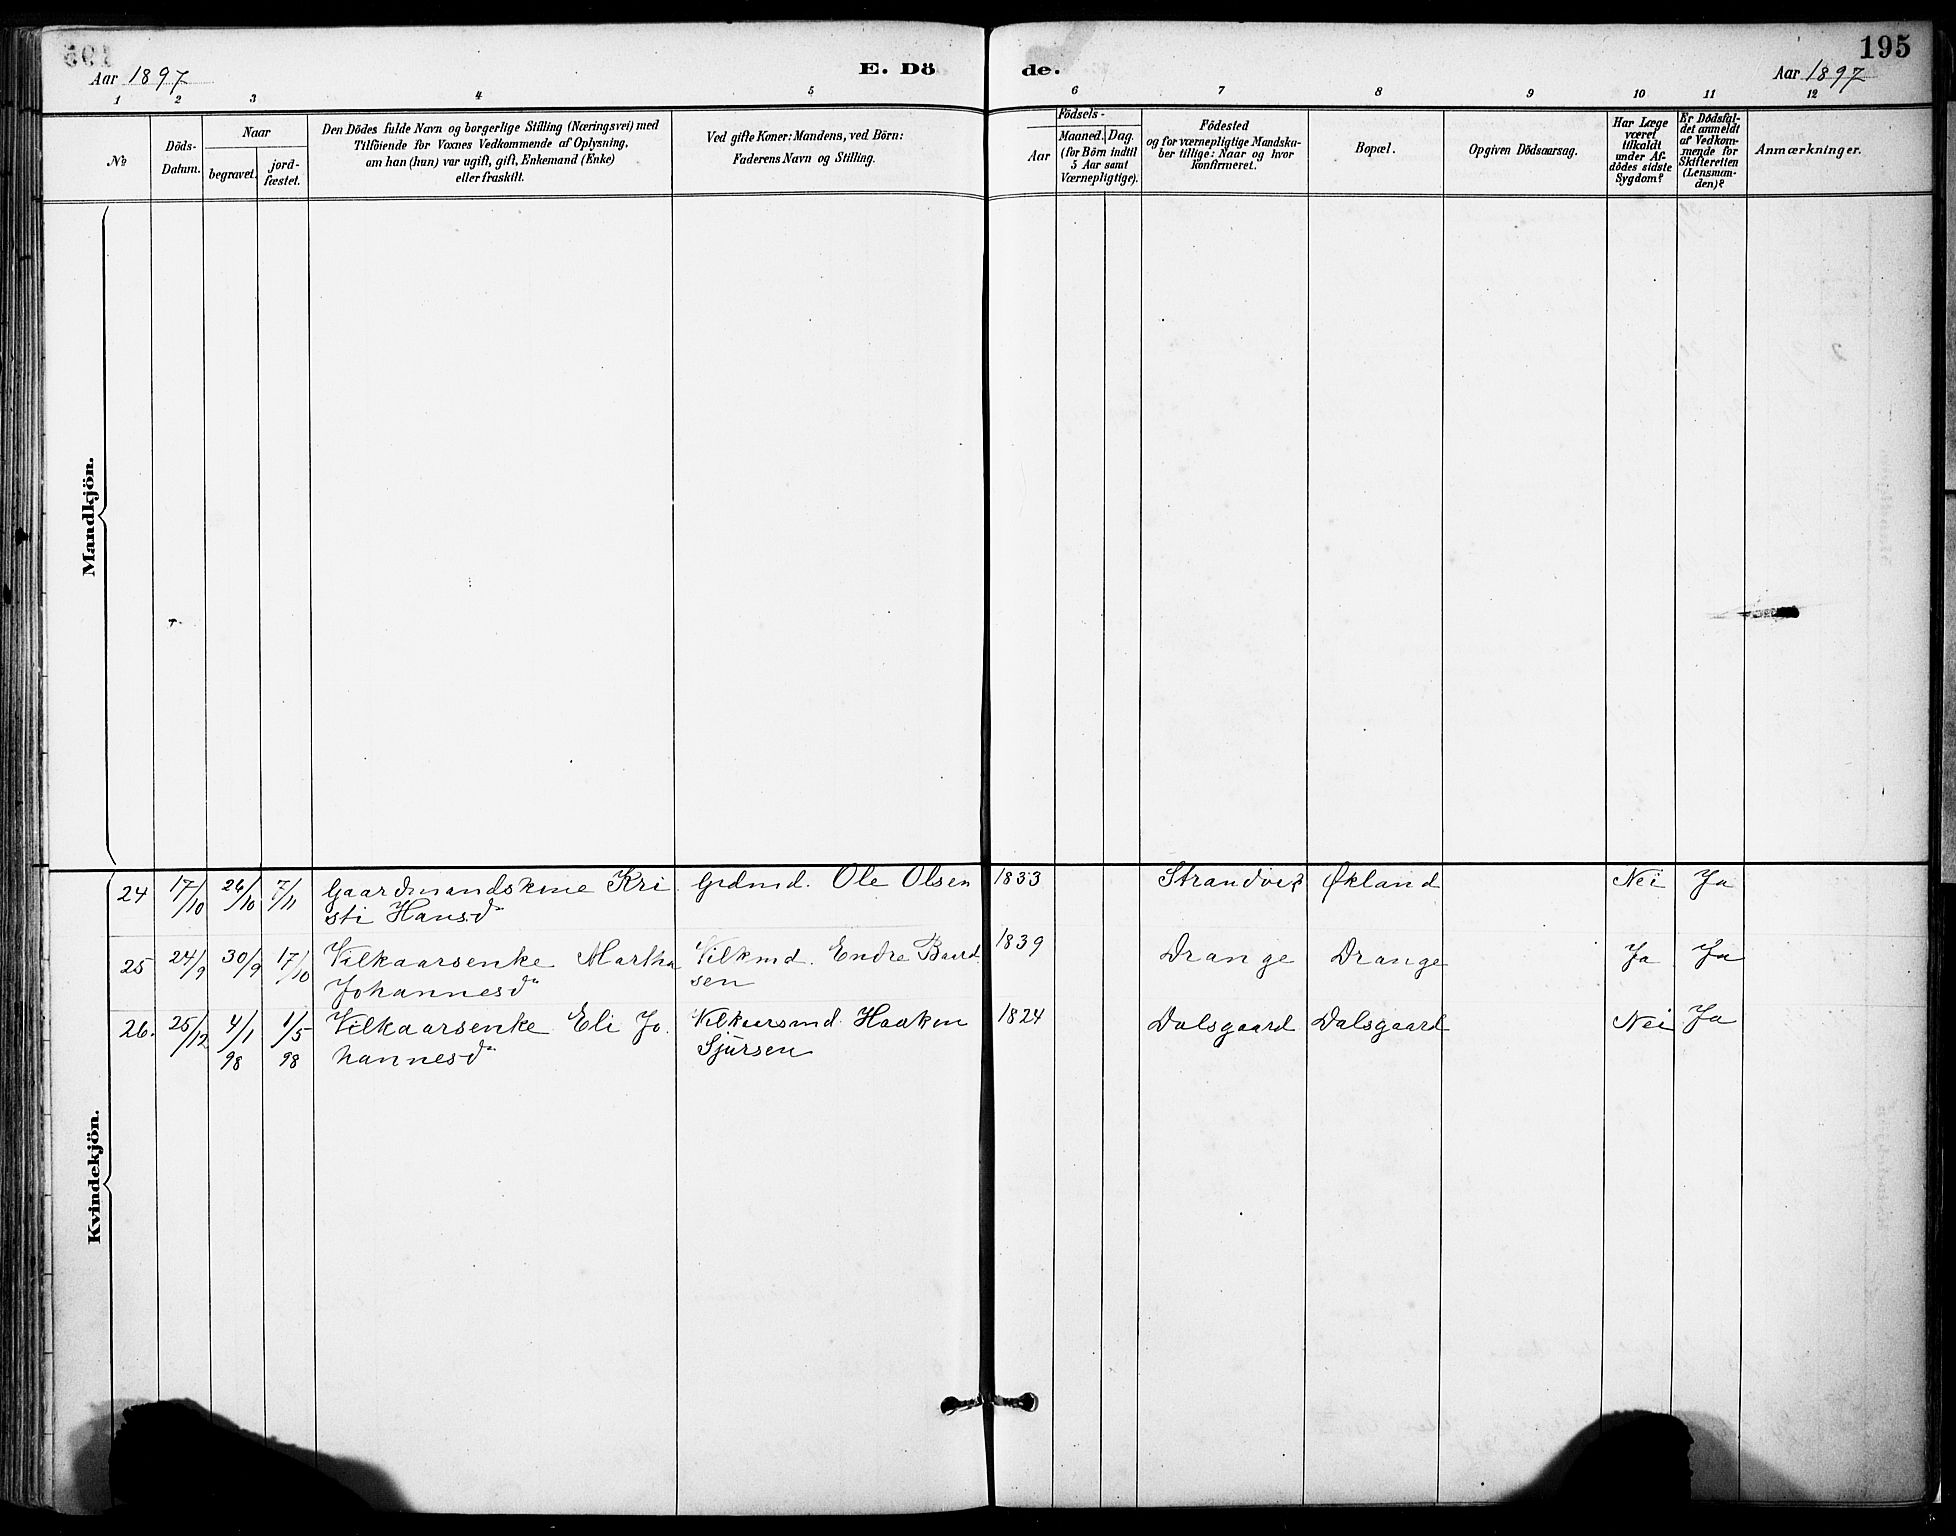 195
Aar 1897
E. Dö
de.
Aar 1897
1 2 3 4 5 6 7 8 9 10 11 12
No
Döds-
Datum.
Naar
begravet.
jord-
fæstet.
Den Dödes fulde Navn og borgerlige Stilling (Næringsvei) med
Tilföiende for Voxnes Vedkommende af Oplysning,
om han (hun) var ugift, gift, Enkemand (Enke)
eller fraskilt.
Ved gifte Koner: Mandens, ved Börn:
Faderens Navn og Stilling.
Födsels-
Aar
Maaned. Dag.
(for Börn indtil
5 Aar samt
Værnepligtige).
Födested
og for værnepligtige Mandska-
ber tillige: Naar og hvor
konfirmeret.
Bopæl.
Opgiven Dödsaarsag.
Har Læge
været
tilkaldt
under Af-
dödes sidste
Sygdom?
Er Dödsfal-
det anmeldt
af Vedkom-
mende for
Skifteretten
(Lensman-
den)?
Anmærkninger.
Mandkjön.
Kvindekjön.
24 17/10 26/10 7/11 Gaardmandskone Kri Grdmd. Ole Olsen 1833 Strandvik Økland Nei Ja
sti Hansd
25 24/9 30/9 17/10 Vilkaarsenke Martha Vilkmd. Endre Baard 1839 Drange Drange Ja Ja
Johannesd sen
26. 25/12 4/1 1/5 Vilkaarsenke Eli Jo. Vilkaarsmd. Haaken 1824 Dalsgaard Dalsgaard Nei Ja
98 98 hannesd Sjursen